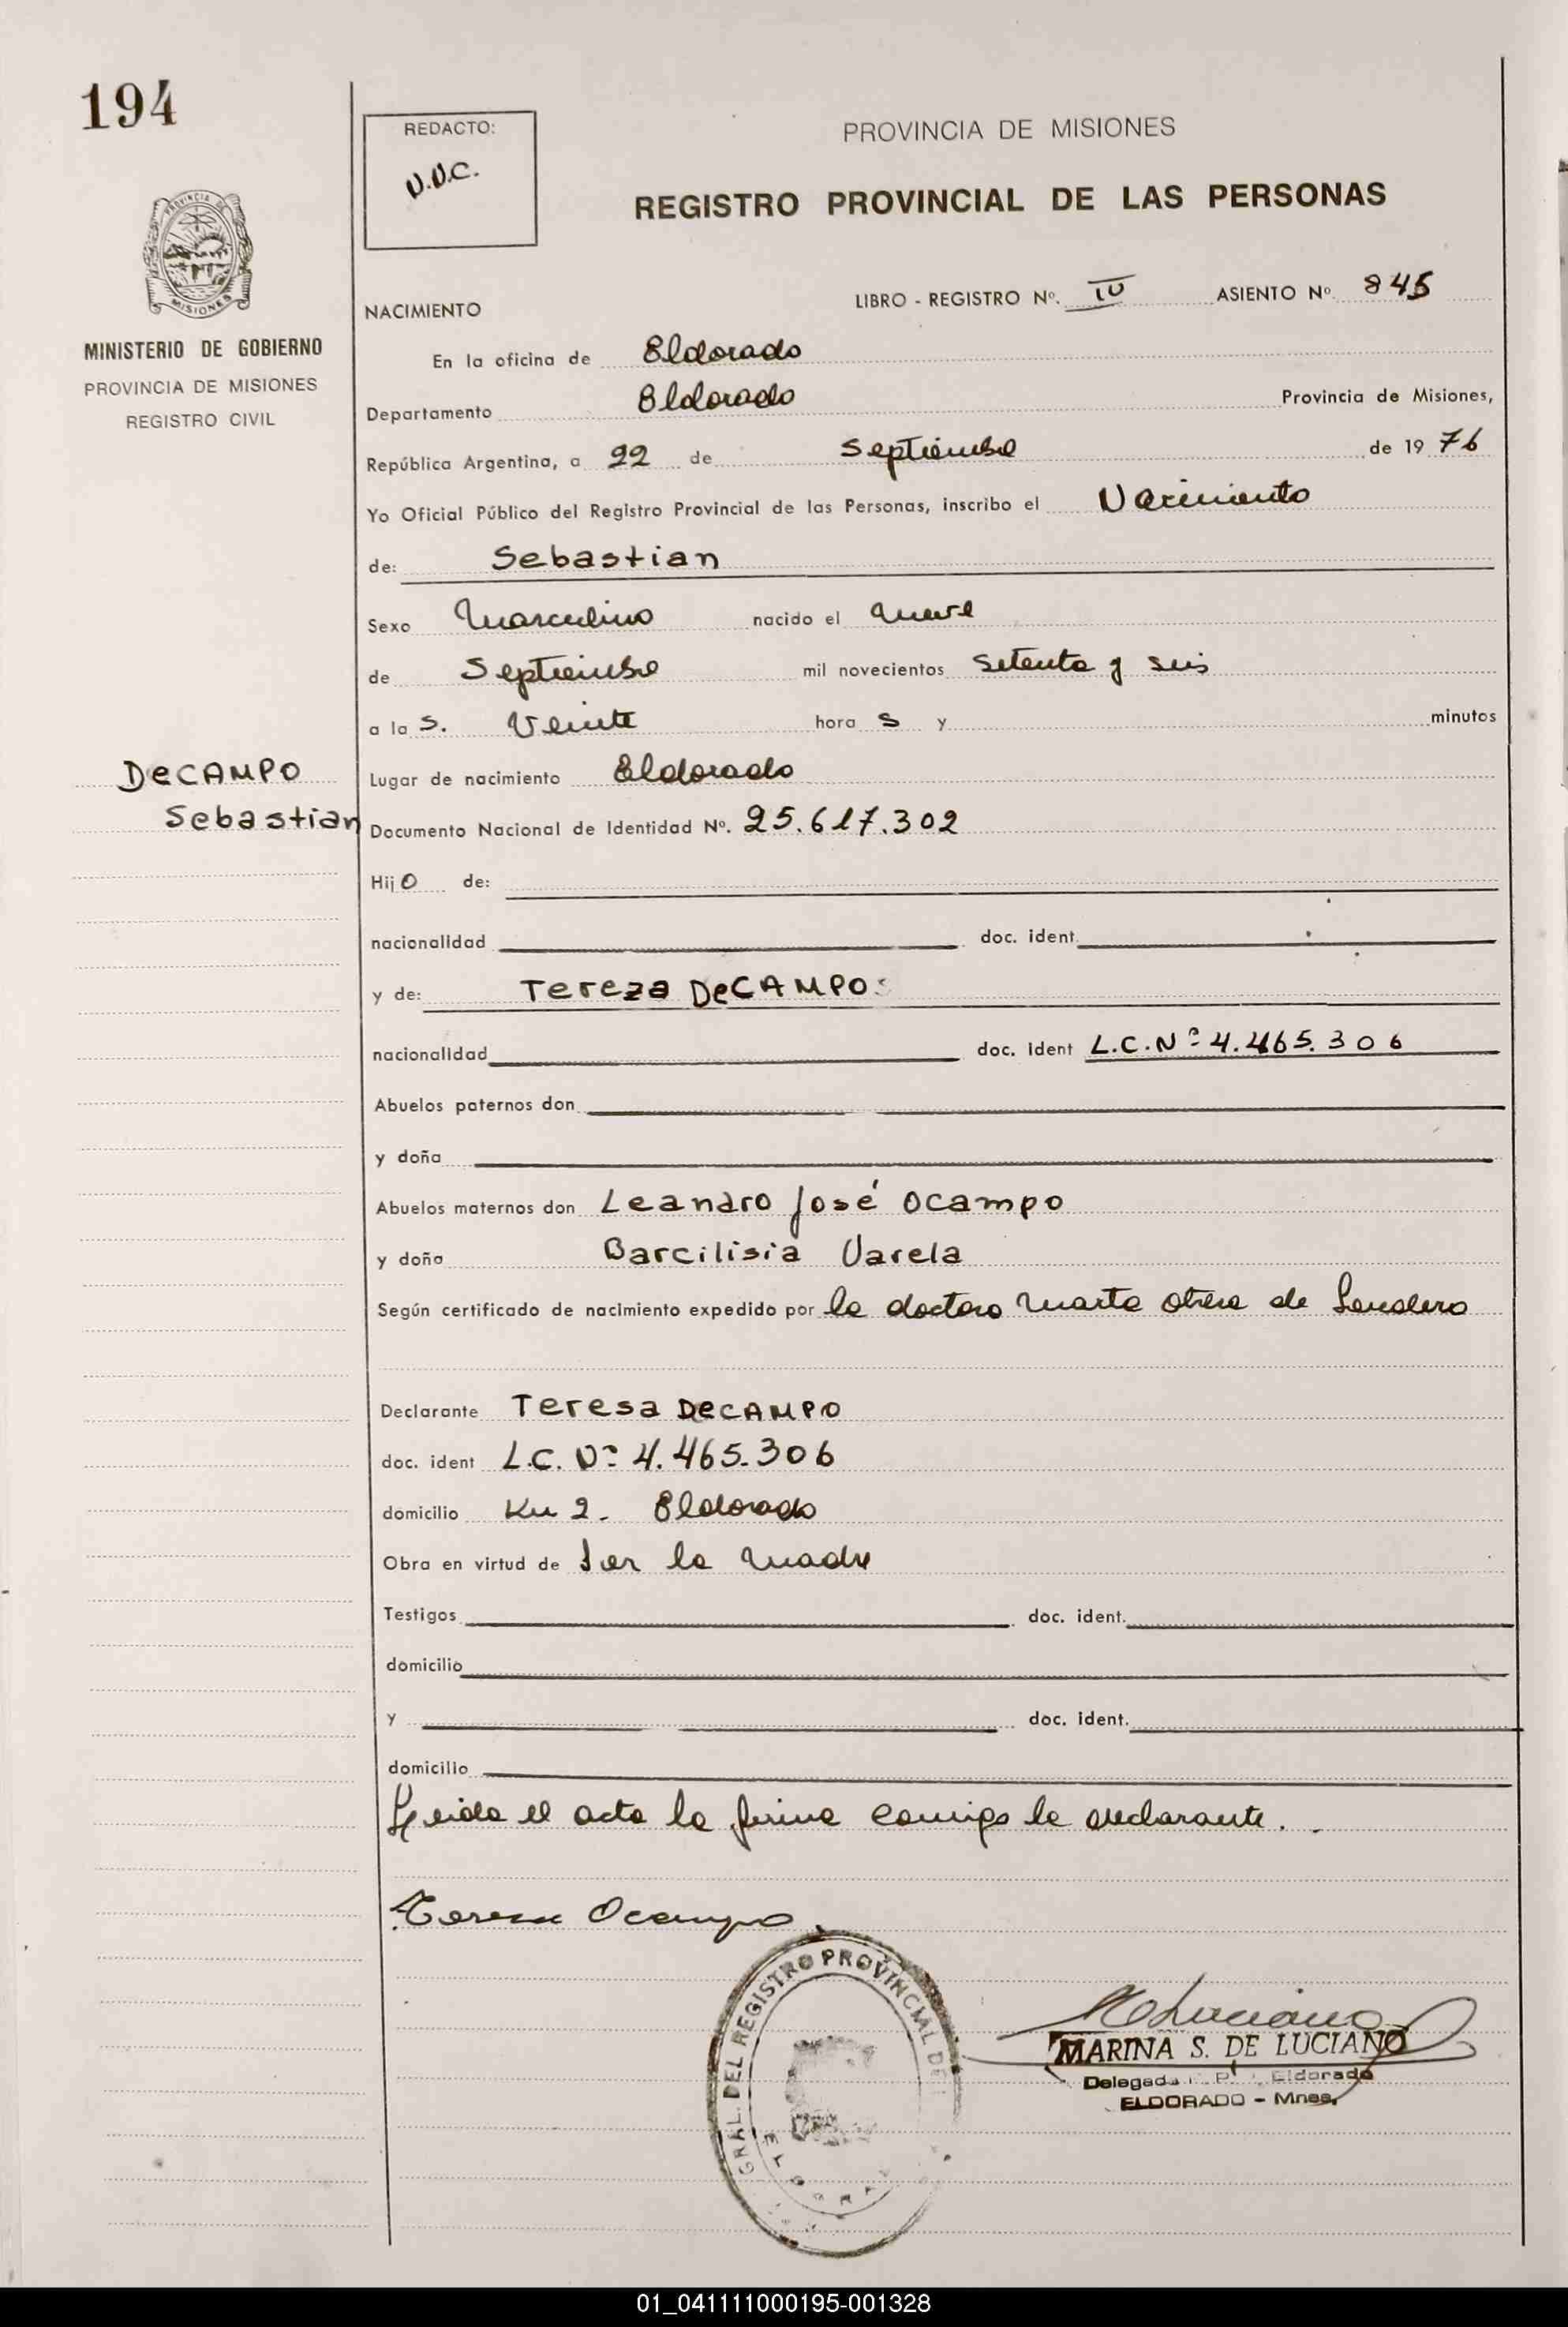 194
REDACTO:
PROVINCIA DE MISIONES
REGISTRO PROVINCIAL DE LAS PERSONAS
MINISTERIO DE GOBIERNO
PROVINCIA DE MISIONES
REGISTRO CIVIL
NACIMIENTO LIBRO - REGISTRO Nº. IV ASIENTO Nº 845
En la oficina de Eldorado
Departamento Eldorado Provincia de Misiones,
República Argentina, a 22 de Septiembre de 19 76
Yo Oficial Público del Registro Provincial de las Personas, inscribo el Nacimiento
de: Sebastian
Sexo Masculino nacido el nueve
de Septiembre mil novecientos setenta y seis
a la s. Veinte hora s y minutos
DeCAMPO
Sebastian
Lugar de nacimiento Eldorado
Documento Nacional de Identidad Nº. 25.617.302
Hij o de:
nacionalidad doc. ident.
y de: Tereza DeCAMPO
nacionalidad doc. ident L.C.Nº 4.465.306
Abuelos paternos don
y doña
Abuelos maternos don Leandro José Ocampo
y doña Barcilisia Varela
Según certificado de nacimiento expedido por la doctora Marta de
Declarante Teresa DeCAMPO
doc. ident L.C. Nº 4.465.306
domicilio Km 2. Eldorado
Obra en virtud de Ser la madre
Testigos doc. ident.
domicilio
y doc. ident.
domicilio
Leida el acta la firma conmigo la declarante.
Teresa Ocampo
GRAL. DEL REGISTRO PROVINCIAL DE
MARINA S. DE LUCIANO
Delegada Eldorado
ELDORADO - Mnes.
01_041111000195-001328